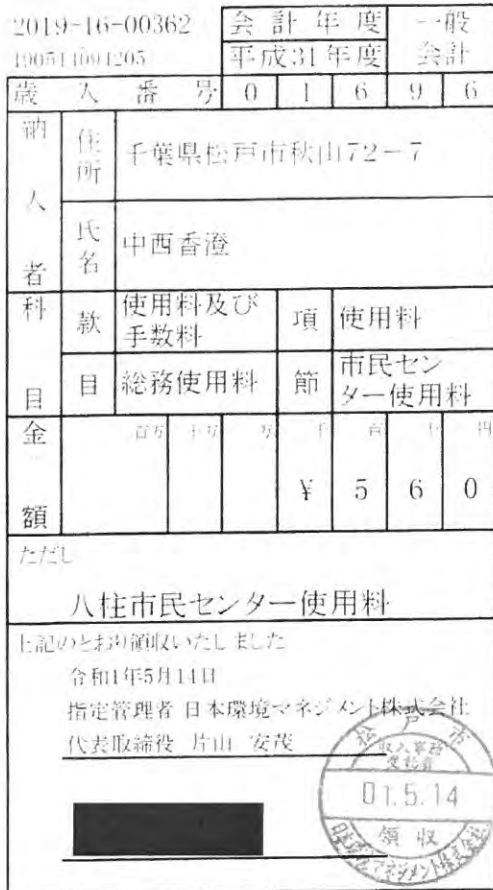 2019-16-00362
会計年度
一般会計
190514094205
平成31年度
歳入番号 0 1 6 9 6
納入者
住所
千葉県松戸市秋山72-7
氏名
中西香澄
科目
款
使用料及び手数料
項
使用料
目
総務使用料
節
市民センター使用料
金額
百万 十万 万 千 百 十 円
¥ 5 6 0
ただし
八柱市民センター使用料
上記のとおり領収いたしました
令和1年5月14日
指定管理者 日本環境マネジメント株式会社
代表取締役 片山 安茂
松戸市
収入事務
受託者
01.5.14
領収
日本環境マネジメント株式会社